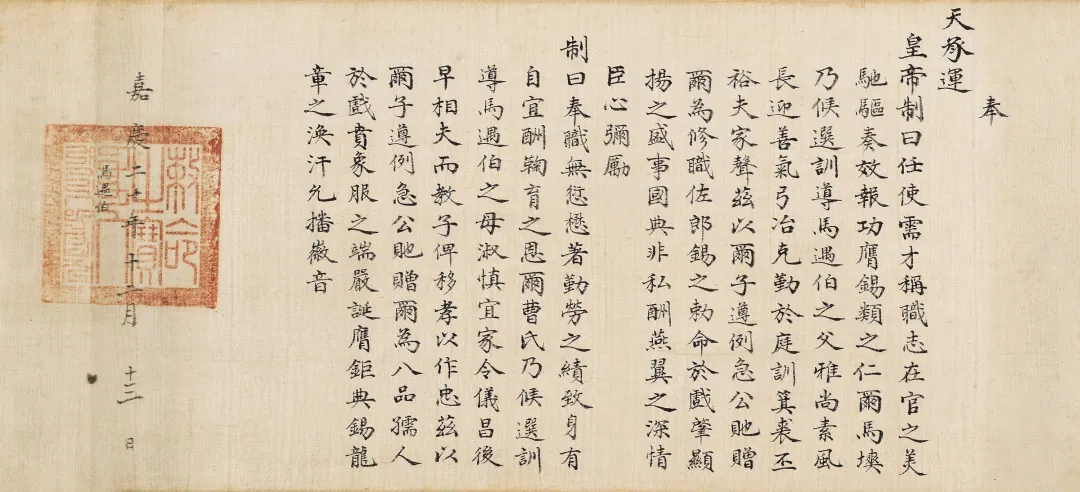 奉
天承運
皇帝制曰任使需才稱職志在官之美
馳驅奏效報功膺錫類之仁爾馬墺
乃候選訓導馬遇伯之父雅尚素風
長迎善氣弓冶克勤於庭訓箕裘丕
裕夫家聲茲以爾子遵例急公貤贈
爾為修職佐郎錫之勅命於戲肇顯
揚之盛事國典非私酬燕翼之深情
臣心彌勵
制曰奉職無愆懋著勤勞之績致身有
自宜酬鞠育之恩爾曹氏乃候選訓
導馬遇伯之母淑慎宜家令儀昌後
早相夫而教子俾移孝以作忠茲以
爾子遵例急公貤贈爾為八品孺人
於戲賁象服之端嚴誕膺鉅典錫龍
章之渙汗允播徽音
嘉慶二十年十二月十二日
馬遇伯
敕命之寶